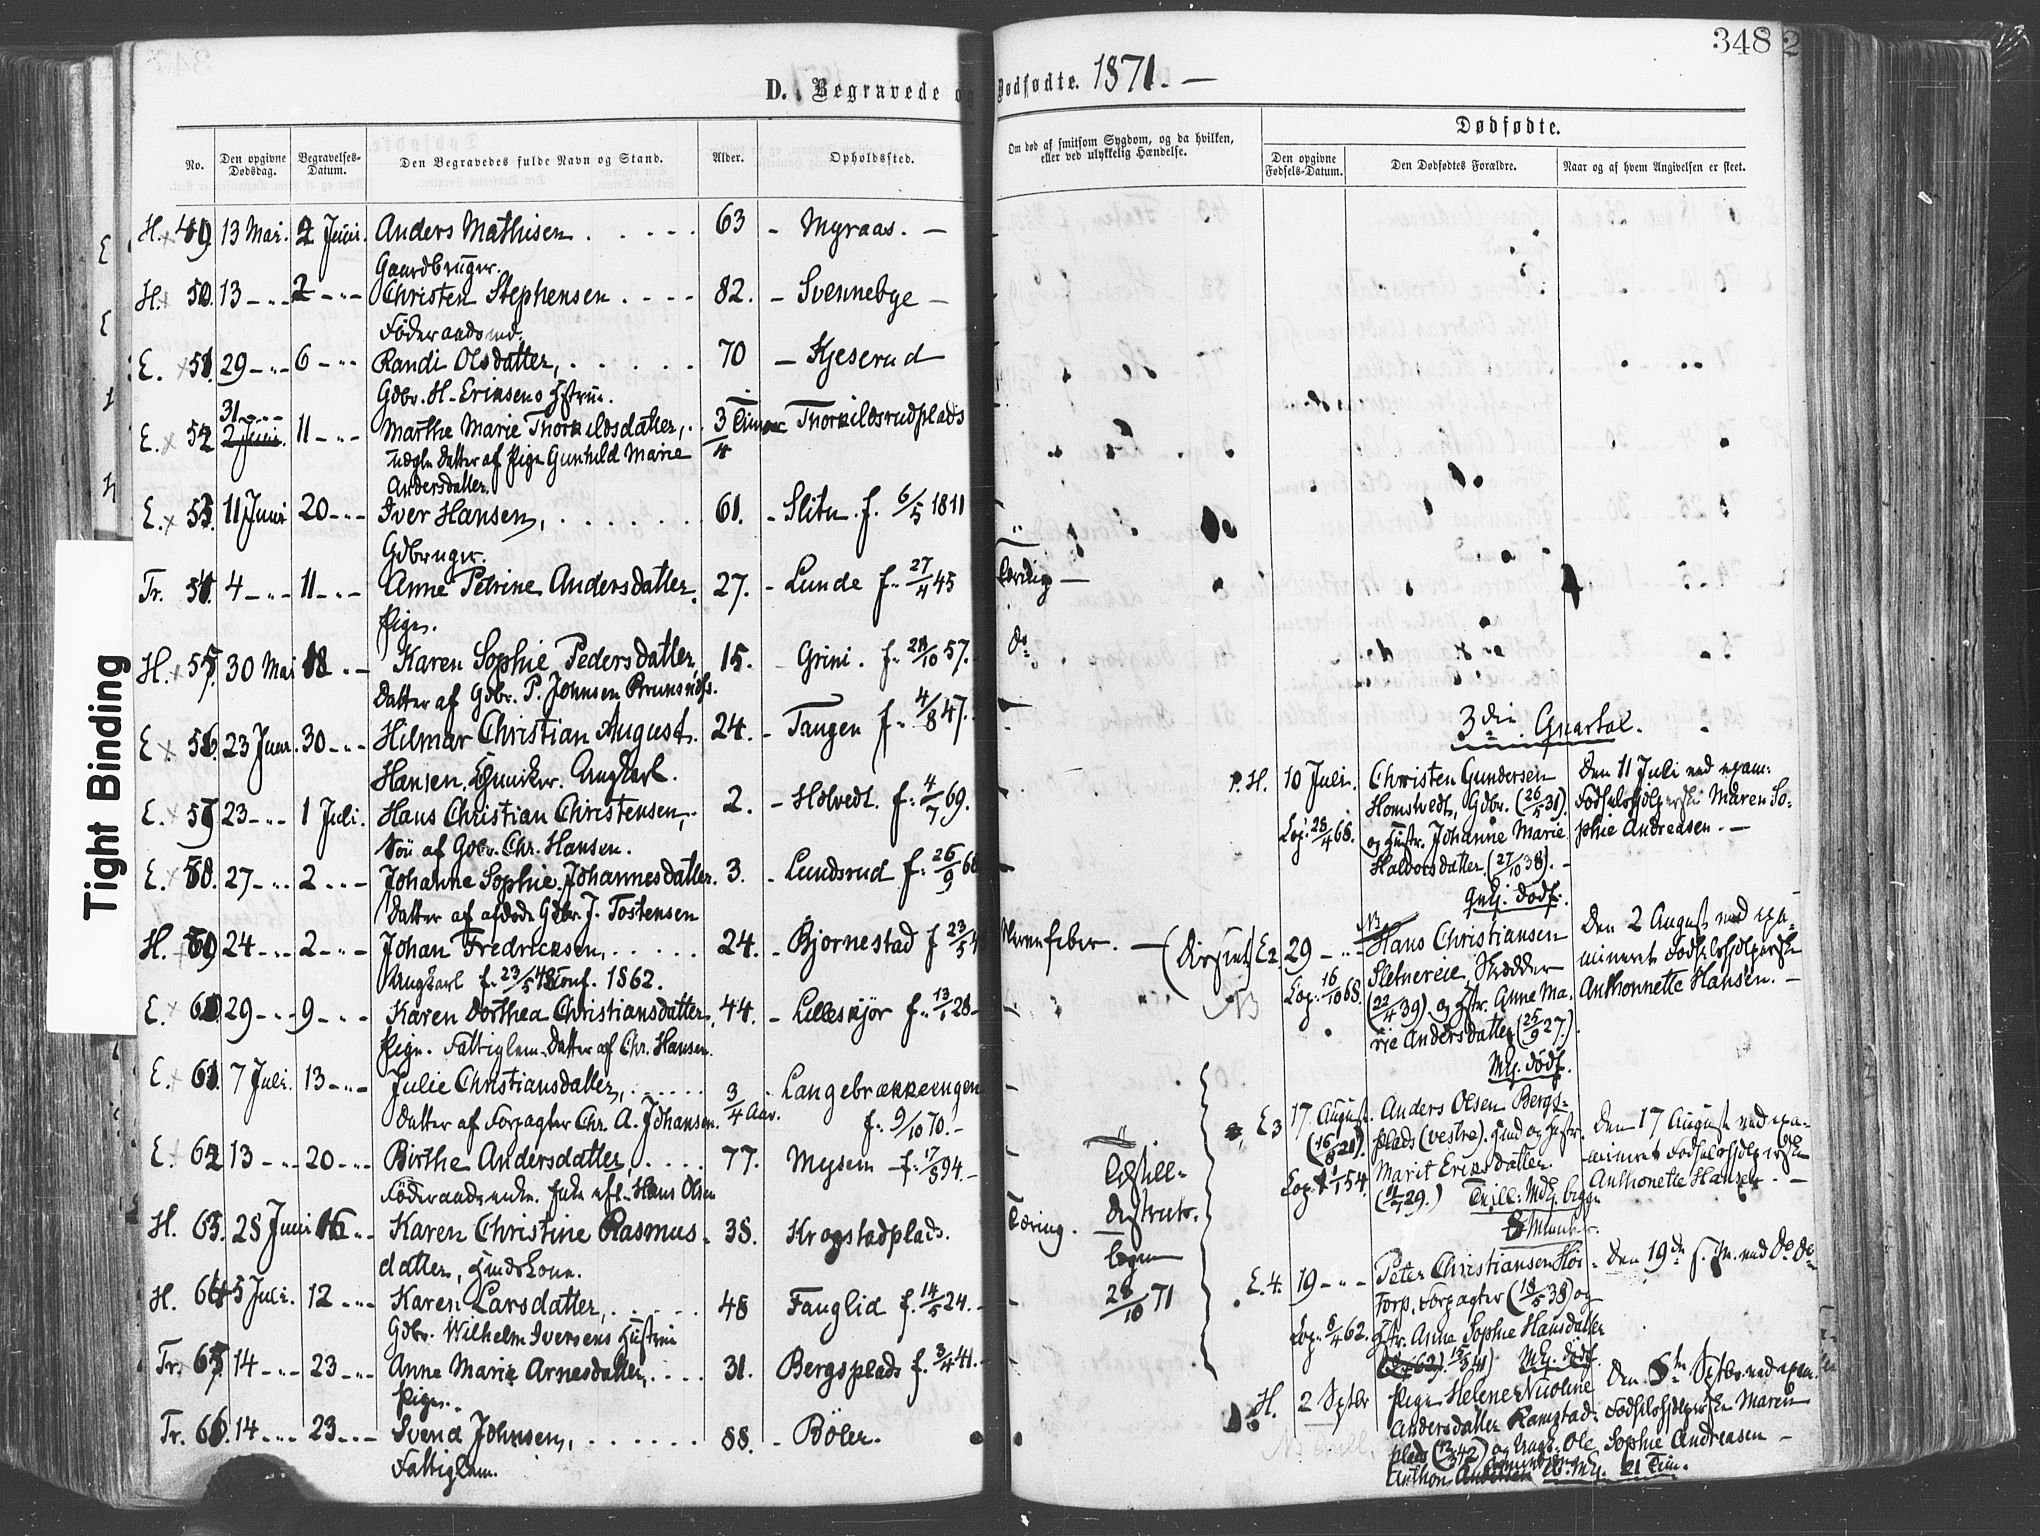 348
D. Begravede og Dødfødte. 1871. —
No.
Den opgivne Dødsdag.
Begravelses-Datum.
Den Begravedes fulde Navn og Stand.
Alder.
Opholdssted.
Om død af smitsom Sygdom, og da hvilken, eller ved ulykkelig Hændelse.
Dødfødte.
Den opgivne Fødsels-Datum.
Den Dødfødtes Forældre.
Naar og af hvem Angivelsen er skeet.
Tight Binding
H. 49 13 Mai. 2 Juni. Anders Mathisen 63 - Myraas. -
Gaardbruger.
H. 50. 13 - " - 2 - " - Christen Stephensen 82. - Svennebye -
Føderaadsmd.
E. 51. 29 - " - 6 - " - Randi Olsdatter, 70 - Kjeserud
Gdbr. H. Eriksens Hstru.
31 - " -
E. 52 2 Juni. 11 - " - Marthe Marie Thorkildsdatter, 3/4 Timer Thorkildsrudplads
uægte Datter af Pige Gunhild Marie
Andersdatter.
E. 53. 11 Juni 20 - " - Iver Hansen, 61. - Slitu. f. 6/5 1811
Gdbruger.
Tr. 54. 4 - " - 11 - " - Anne Petrine Andersdatter 27. - Lunde f. 27/4 45
Pige.
H. 55. 30 Mai 18 - " - Karen Sophie Pedersdatter 15. - Grini. f. 28/10 57.
Datter af Gdbr. P. Johnsen
E. 56. 23 Juni. 30 - " - Hilmar Christian August 24. - Tangen f. 4/8 47.
Hansen, Ungkarl.
E. 57 23 - " - 1 Juli. Hans Christian Christensen, 2. - Holvedt. f. 4/7 69.
Søn af Gdbr. Chr. Hansen.
E. 58. 27 - " - 2 - " - Johanne Sophie Johannesdatter. 3. - Lundsrud f. 26/9 68
Datter af afdøde Gdbr. J. Tostensen
H. 59 24 - " - 2 - " - Johan Fredricksen, 24. - Bjørnestad f 23/5
Ungkarl f. 23/5 48 Conf. 1862.
E. 60. 29 - " - 9 - " - Karen Dorthea Christiansdatter, 44. - Lilleskjør f. 13/1 28 -
Pige. Fattiglem. Datter af Chr. Hansen.
E. 61. 7 Juli. 13 - " - Julie Christiansdatter, 3/4 Aar. Langebrækkeengen
Datter af Forpagter Chr. A. Johansen. f. 9/10 70. -
E. 62 13 - " - 20 - " - Birthe Andersdatter 77. - Mysen - f. 17/8 94. -
Føderaadsenke. Enke eft. Hans Olsen
H. 63. 28 Juni 16 - " - Karen Christine Rasmus- 38. Krogstadplads.
datter, Huuskone.
H. 64 5 Juli. 12 - " - Karen Larsdatter, 48 - Fanglid f. 14/5 24. -
Gdbr. Wilhelm Iversens Hustru
Tr. 65 14 - " - 23 - " - Anne Marie Arnesdatter, 31. Bergsplads f. 3/4 41. -
Pige.
Tr. 66. 14 - " - 23 - " - Svend Johnsen, 88. - Böler.
Fattiglem.
Do.
Nervefeber. -
Tæring.
28/10 71
3die Quartal.
H. 10 Juli. Christen Gundersen Den 11 Juli ved exam:
Homstvedt, Gdbr. (26/5 31) Fødselshjelperske Maren So-
Cop. 28/4 68. og Hustr. Johanne Marie phie Andreasen. -
Halvorsdatter (27/10 38). -
Gutj. Dødf.
NB
E 2. 29 - " - Hans Christiansen Den 2 August ved exa-
Sletnereie Skrædder mineret Fødselshjelperske
Cop. 16/10 68. (22/4 39) og Hstr. Anne Ma- Anthonnette Hansen. -
rie Andersdatter (25/9 27.)
NB
E 3 17 August. Anders Olsen Bergs- Den 17 August ved exa-
(16/8 21). plads (vestre). mineret Fødselshjelperske
Cop. 1/1 54. Marit Eriksdatter. Anthonette Hansen -
29.)
E. 4. 19 - " - Peter Christiansen Høi- Den 19de s. M. ved Do Do
torp, Forpagter (18/5 38) og
Cop. 8/4 62. Hstr. Anne Sophie Hansdatter
H. 2 Sptbr Pige Helene Nicoline Sptbr. ved exam.
Andersdatter Ramstad- Fødselshjelperske Maren
plads og Ungk. Ole Sophie Andreasen -
Anthon 21 Tim.